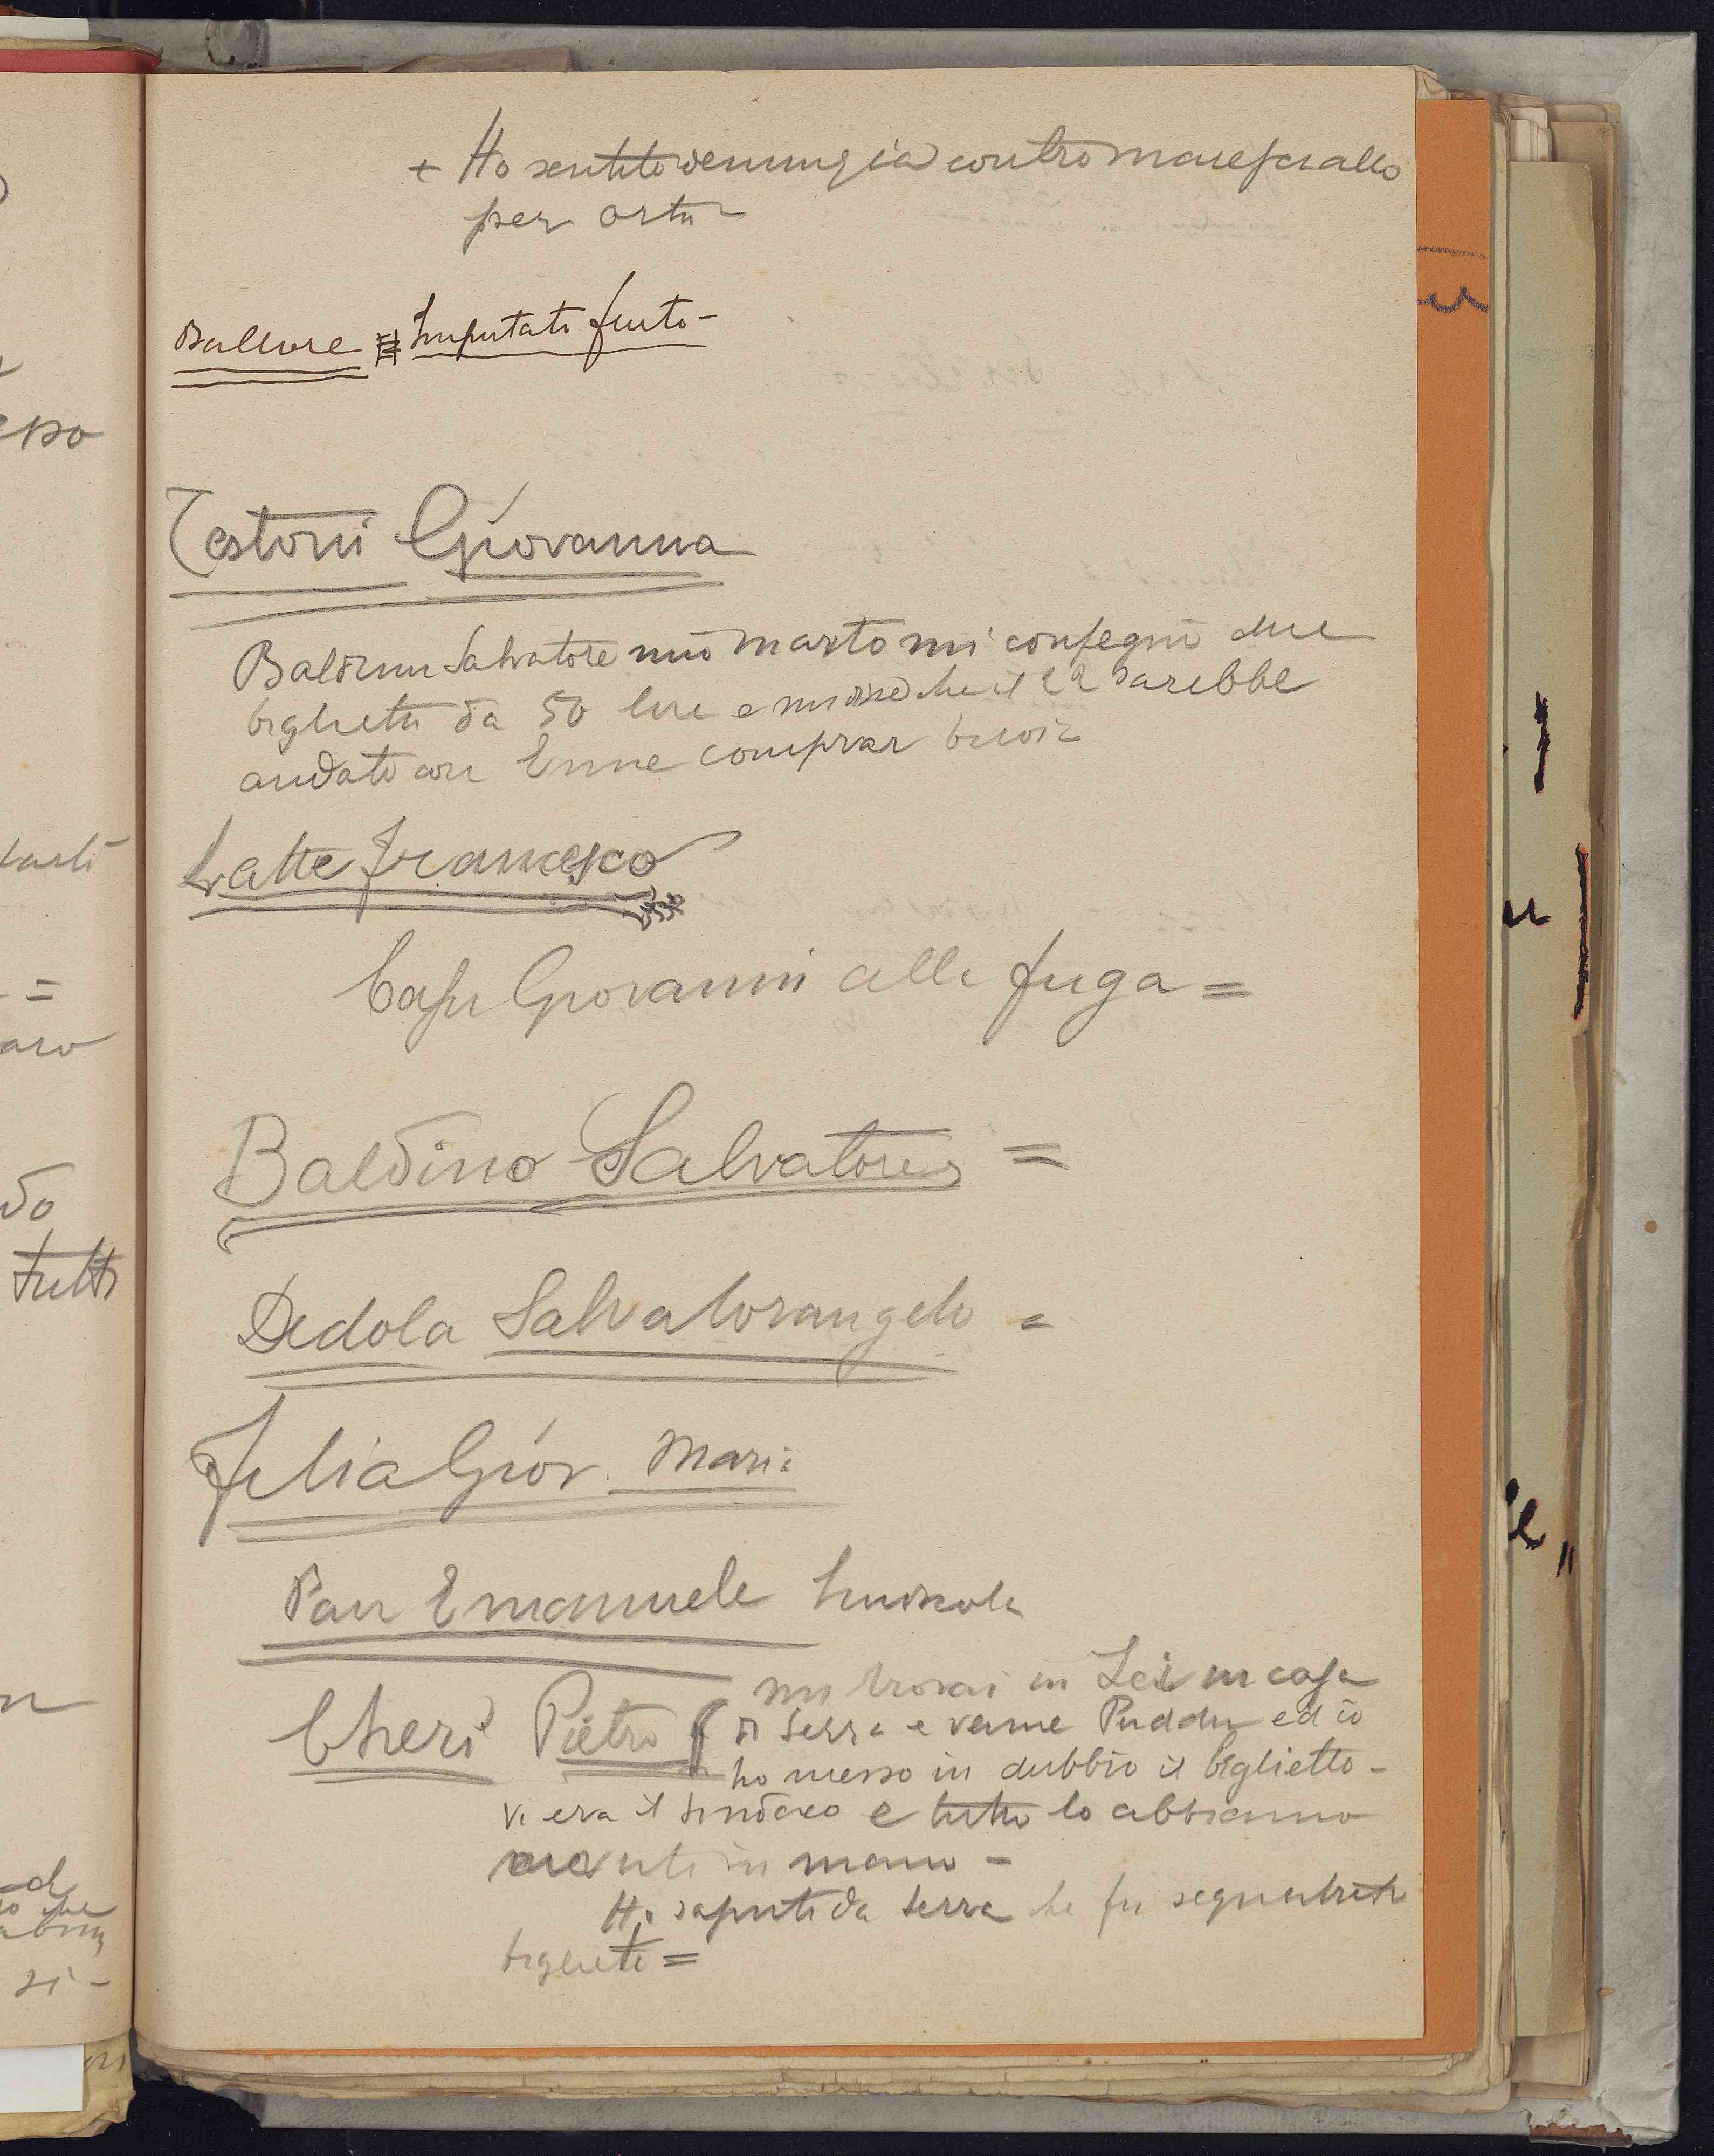 + Ho sentito denunzia contro maresciallo
per Ortu
Ballore = Imputato furto -
Testoni Giovanna
Salvatore mio marito mi consegnò due
biglietti da 50 lire e mi disse che il 22 sarebbe
andato con Enne comprar buoi
Latte Francesco
Casu Giovanni alla fuga =
Baldino Salvatore =
Dedola Salvatorangelo =
Felia Giov. Maria
Pau Emanuele
Cheri Pietro
mi trovai in Lei in casa
di Serra e venne Puddu ed io
ho messo in dubbio il biglietto -
vi era il sindaco e tutti lo abbiamo
avuto in mano -
Ho saputo da Serra che fu sequestrato
biglietto =